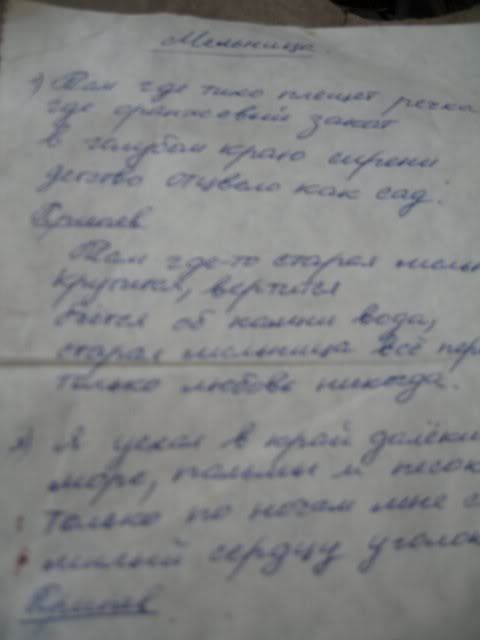 Мельница
1) Там где тихо плещет речка
где оранжевый закат
В голубом краю сирени
детство отцвело как сад.
Припев
Там где-то старая мель
крутится, вертится
бьётся об камни вода,
старая мельница всё пер
только любовь никогда.
2) Я уехал в край далёки
море, пальмы и песок
только по ночам мне с
милый сердцу уголок
Припев